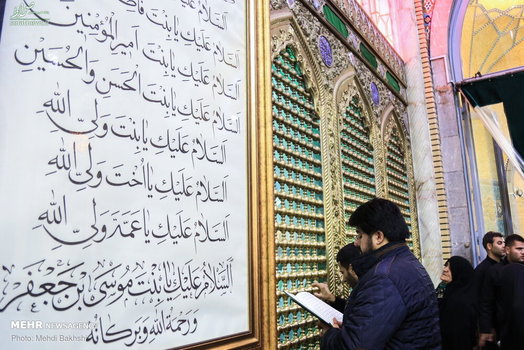 اَلسَّلامُ عَلَيْكِ يا بِنْتَ فاطِمَةَ
اَلسَّلامُ عَلَيْكِ يا بِنْتَ اَميرِالْمُؤْمِنينَ
اَلسَّلامُ عَلَيْكِ يا بِنْتَ الْحَسَنِ وَالْحُسَيْنِ
اَلسَّلامُ عَلَيْكِ يا بِنْتَ وَلِيِّ اللهِ
اَلسَّلامُ عَلَيْكِ يا اُخْتَ وَلِيِّ اللهِ
اَلسَّلامُ عَلَيْكِ يا عَمَّةَ وَلِيِّ اللهِ
اَلسَّلامُ عَلَيْكِ يا بِنْتَ مُوسَى بْنِ جَعْفَرٍ
وَرَحْمَةُ اللهِ وَبَرَكاتُهُ
MEHR NEWSAGENCY
Photo: Mehdi Bakhshi